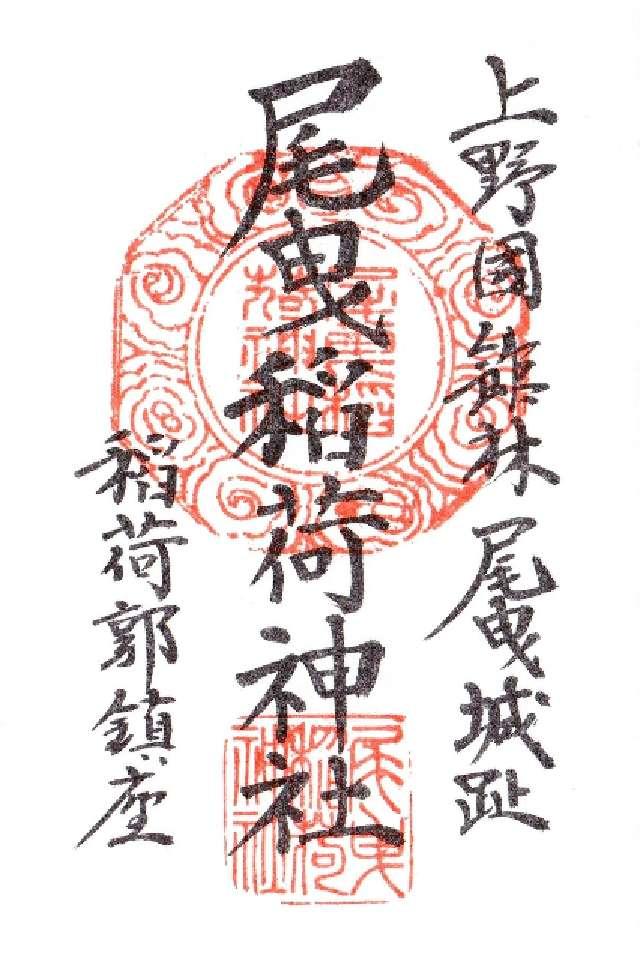 上野国館林尾曳城趾
尾曳稲荷神社
稲荷郭鎮座
尾曳稲荷神社